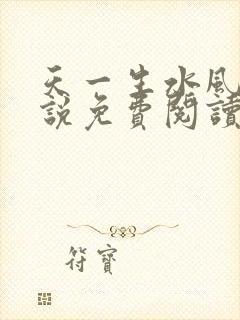 天一生水風
說免費閱讀
符寶